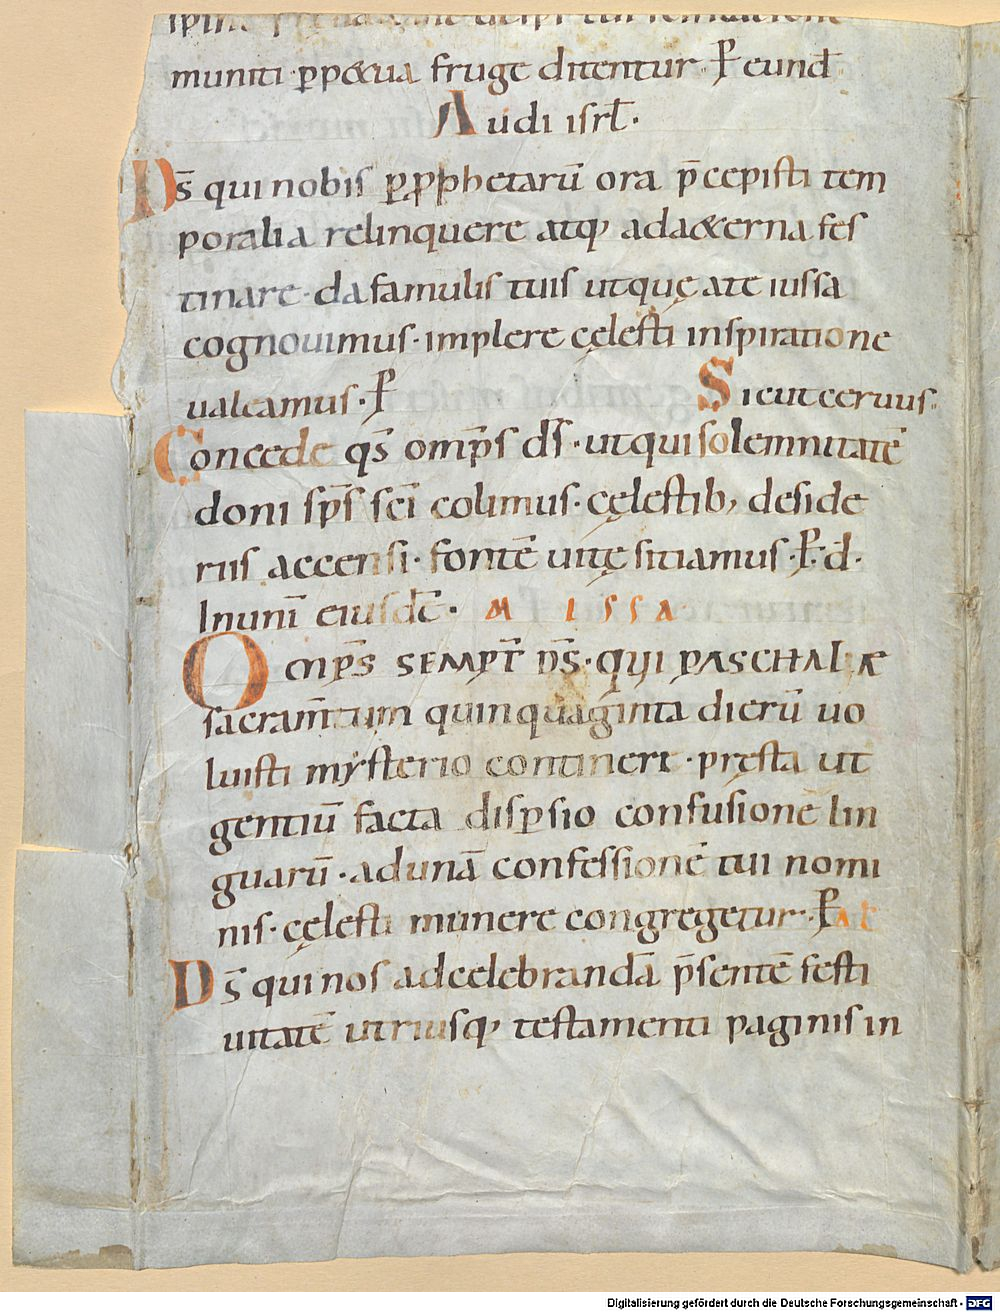 muniti ꝑp&ua fruge ditentur · P̄ eund̄
Audi isrl̄ ·
Ds̄ qui nobis ꝑ ꝓphetarū ora p̄cepisti tem
poralia relinquere atq; ad a&erna fes
tinare · da famulis tuis ut quę a te iussa
cognouimus · implere cęlesti inspiratione
ualeamus · P̄ Sicut ceruus ·
Concede qs̄ omp̄s ds̄ · ut qui solemnitatē
doni sp̄s sc̄i colimus · cęlestib; deside
riis accensi · fontē uitę sitiamus · P̄ · d ·
In unī eiusdē · MISSA
OMP̄S SEMPT̄ DS̄ · QUI PASCHALÆ
sacram̄tum quinquaginta dierū uo
luisti mẏsterio contineri · pręsta ut
gentiū facta disꝑsio confusione lin
guarū · ad unā confessionē tui nomi
nis · cęlesti munere congregetur · P̄ AL
Ds̄ qui nos ad celebrandā p̄sentē festi
uitatē utriusq; testamenti paginis in
Digitalisierung gefördert durch die Deutsche Forschungsgemeinschaft - DFG